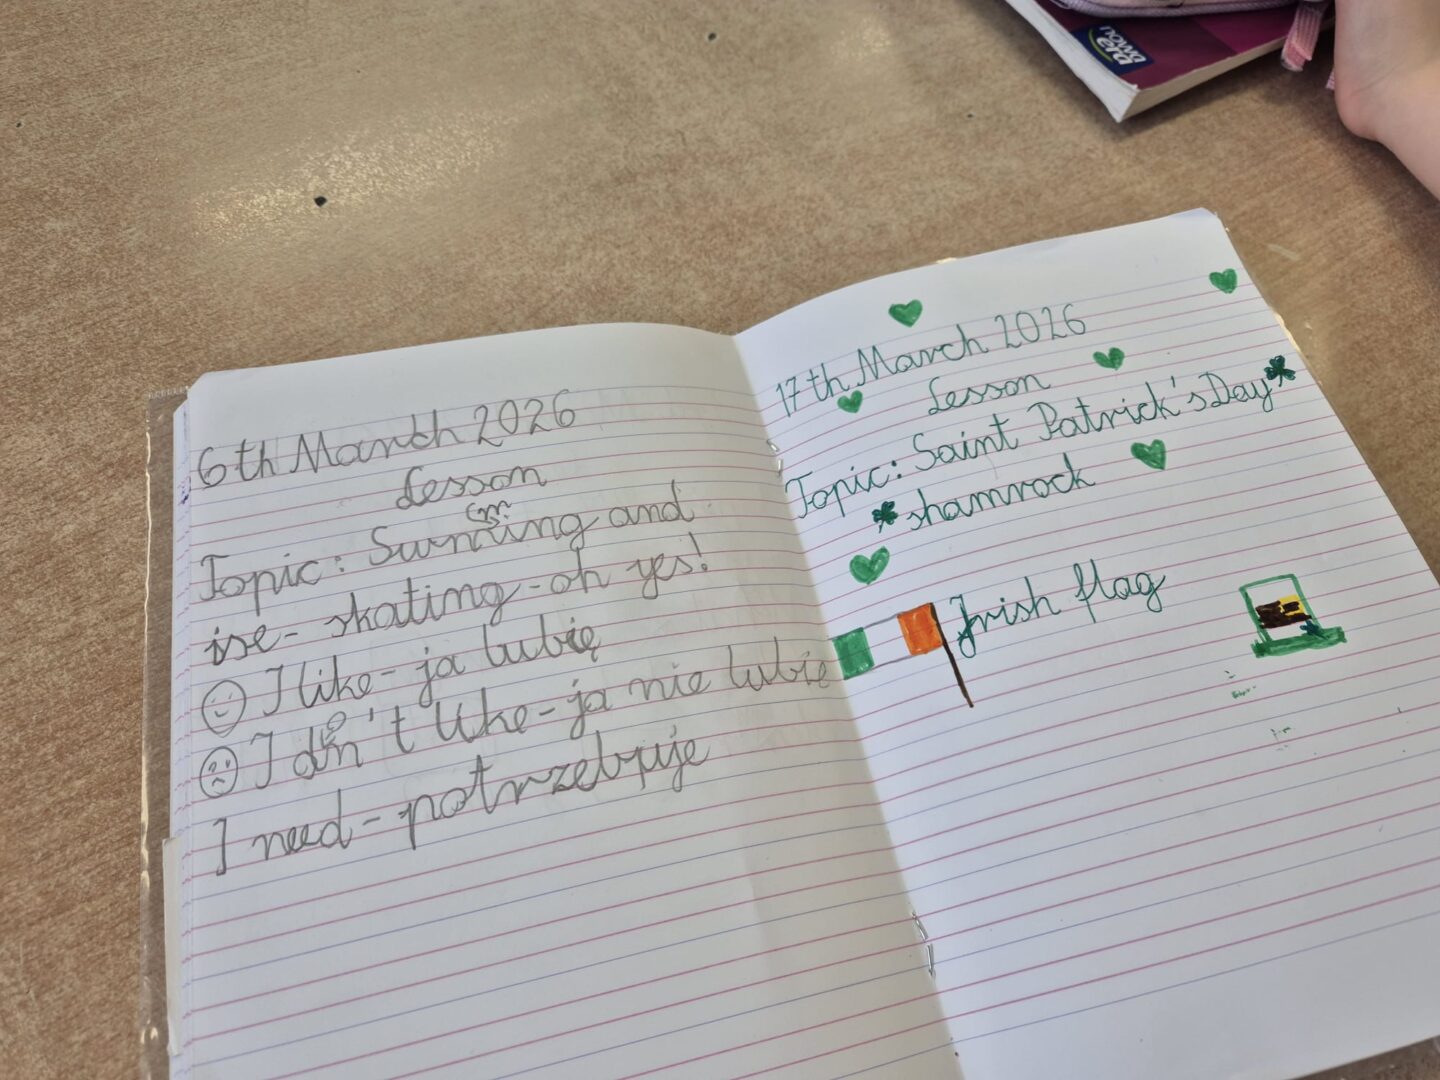 nowa
era
6th March 2026
Lesson
Topic: Swimming and
ise-skating-oh yes!
I like-ja lubię
I don't like-ja nie lubię
I need-potrzebuje
17th March 2026
Lesson
Topic: Saint Patrick's Day
shamrock
Irish flag